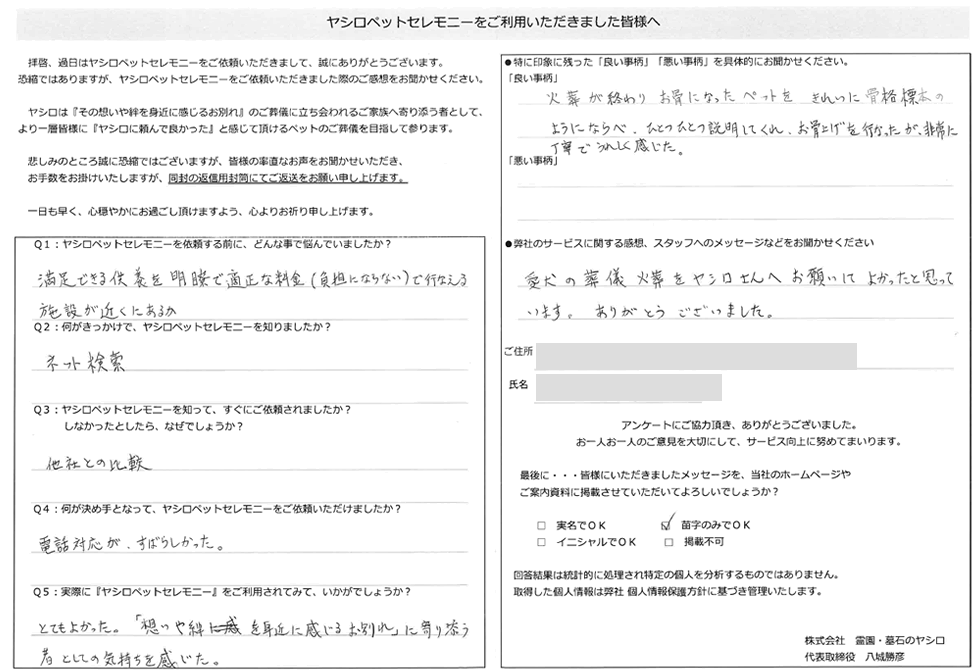 ヤシロペットセレモニーをご利用いただきました皆様へ
拝啓、過日はヤシロペットセレモニーをご依頼いただきまして、誠にありがとうございます。
恐縮ではありますが、ヤシロペットセレモニーをご依頼いただきました際のご感想をお聞かせください。
ヤシロは『その想いや絆を身近に感じるお別れ』のご葬儀に立ち会われるご家族へ寄り添う者として、
より一層皆様に『ヤシロに頼んで良かった』と感じて頂けるペットのご葬儀を目指して参ります。
悲しみのところ誠に恐縮ではございますが、皆様の率直なお声をお聞かせいただき、
お手数をお掛けいたしますが、同封の返信用封筒にてご返送をお願い申し上げます。
一日も早く、心穏やかにお過ごし頂けますよう、心よりお祈り申し上げます。
Q1:ヤシロペットセレモニーを依頼する前に、どんな事で悩んでいましたか?
満足できる供養を明瞭で適正な料金(負担にならない)で行なえる
施設が近くにあるか
Q2:何がきっかけで、ヤシロペットセレモニーを知りましたか?
ネット検索
Q3:ヤシロペットセレモニーを知って、すぐにご依頼されましたか?
しなかったとしたら、なぜでしょうか?
他社との比較
Q4:何が決め手となって、ヤシロペットセレモニーをご依頼いただけましたか?
電話対応が、すばらしかった。
Q5:実際に『ヤシロペットセレモニー』をご利用されてみて、いかがでしょうか?
とてもよかった。「想いや絆を身近に感じるお別れ」に寄り添う
者としての気持ちを感じた。
●特に印象に残った「良い事柄」「悪い事柄」を具体的にお聞かせください。
「良い事柄」
火葬が終わりお骨になったペットをきれいに骨格標本の
ようにならべ、ひとつひとつ説明してくれ、お骨上げを行なったが、非常に
丁寧でうれしく感じた。
「悪い事柄」
●弊社のサービスに関する感想、スタッフへのメッセージなどをお聞かせください
愛犬の葬儀火葬をヤシロさんへお願いしてよかったと思って
います。ありがとうございました。
ご住所
氏名
アンケートにご協力頂き、ありがとうございました。
お一人お一人のご意見を大切にして、サービス向上に努めてまいります。
最後に・・・皆様にいただきましたメッセージを、当社のホームページや
ご案内資料に掲載させていただいてよろしいでしょうか?
□ 実名でOK ☑ 苗字のみでOK
□ イニシャルでOK □ 掲載不可
回答結果は統計的に処理され特定の個人を分析するものではありません。
取得した個人情報は弊社 個人情報保護方針に基づき管理いたします。
株式会社 霊園・墓石のヤシロ
代表取締役 八城勝彦